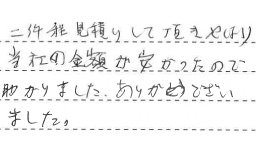 二件程見積りして頂きやはり
当社の金額が安かったので
助かりました。ありがとうござい
ました。